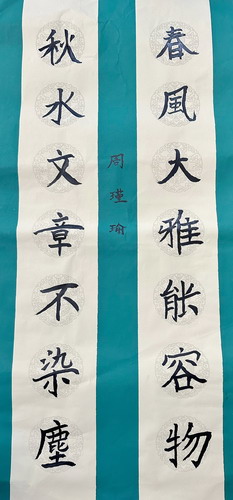 春風大雅能容物
秋水文章不染塵
周瑾瑜